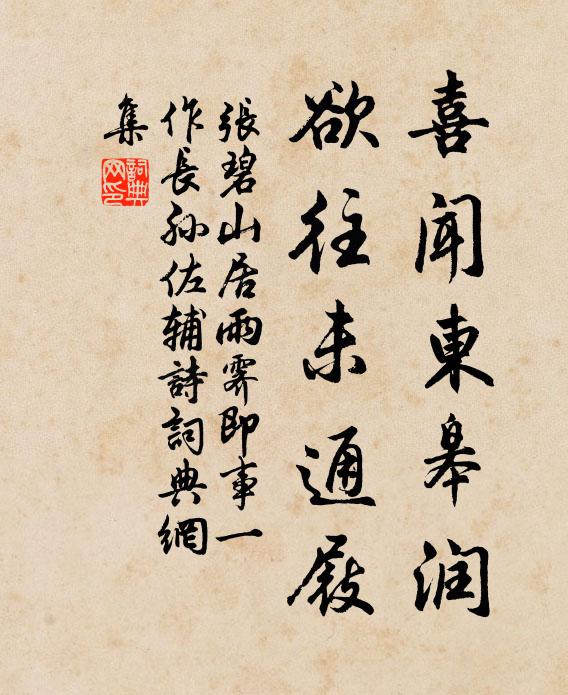 喜闻東皋润
欲往未通屐
張碧山居雨霽即事一
作長孙佐辅詩詞典網
集
詞典
网印